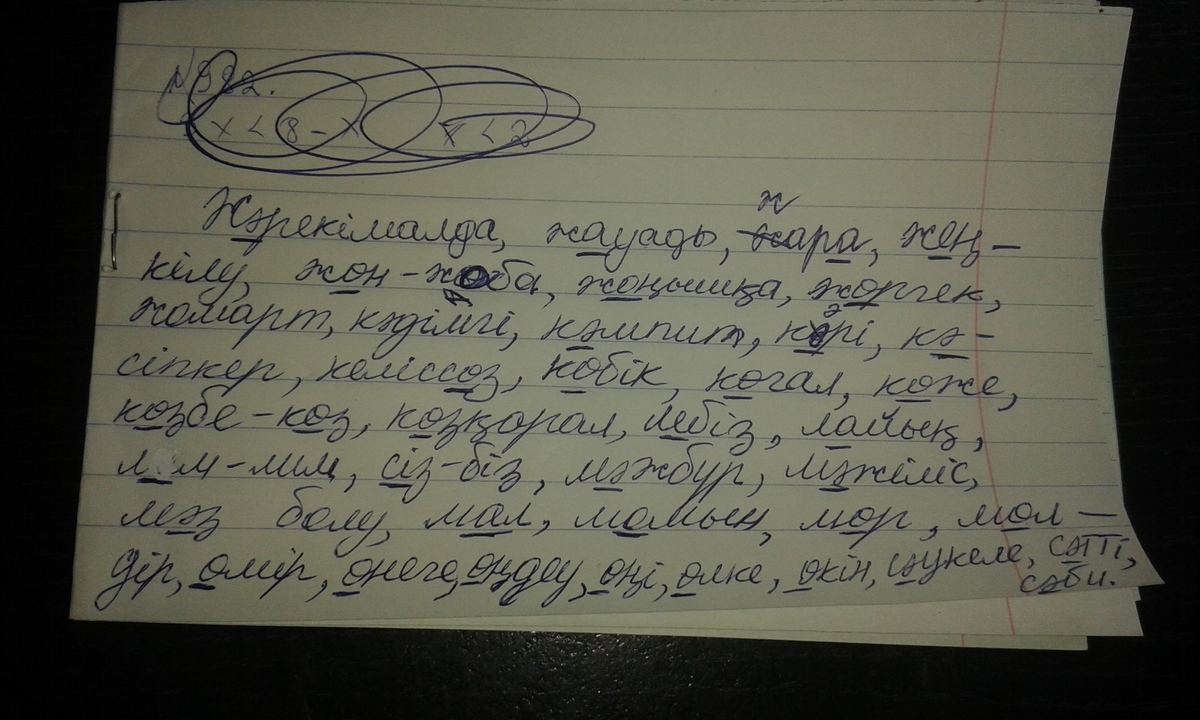 № 982.
x < 8 - x   x < 2
Жәрекімалда, жауады, жара, жең-
кілу, жөн-жоба, жоңышқа, жөргек,
жомарт, кәдімгі, кәмпит, кәрі, кә-
сіпкер, келіссөз, көбік, когал, көже,
көзбе-көз, көзқарал, лебіз, лайық,
лім-лим, сіз-біз, мәжбүр, мәжіліс,
мәз болу, мал, момын, мөр, мөл-
дір, өмір, өнеге, өңдеу, өңі, өлке, өкін, сәукеле, сәтті,
сәби.